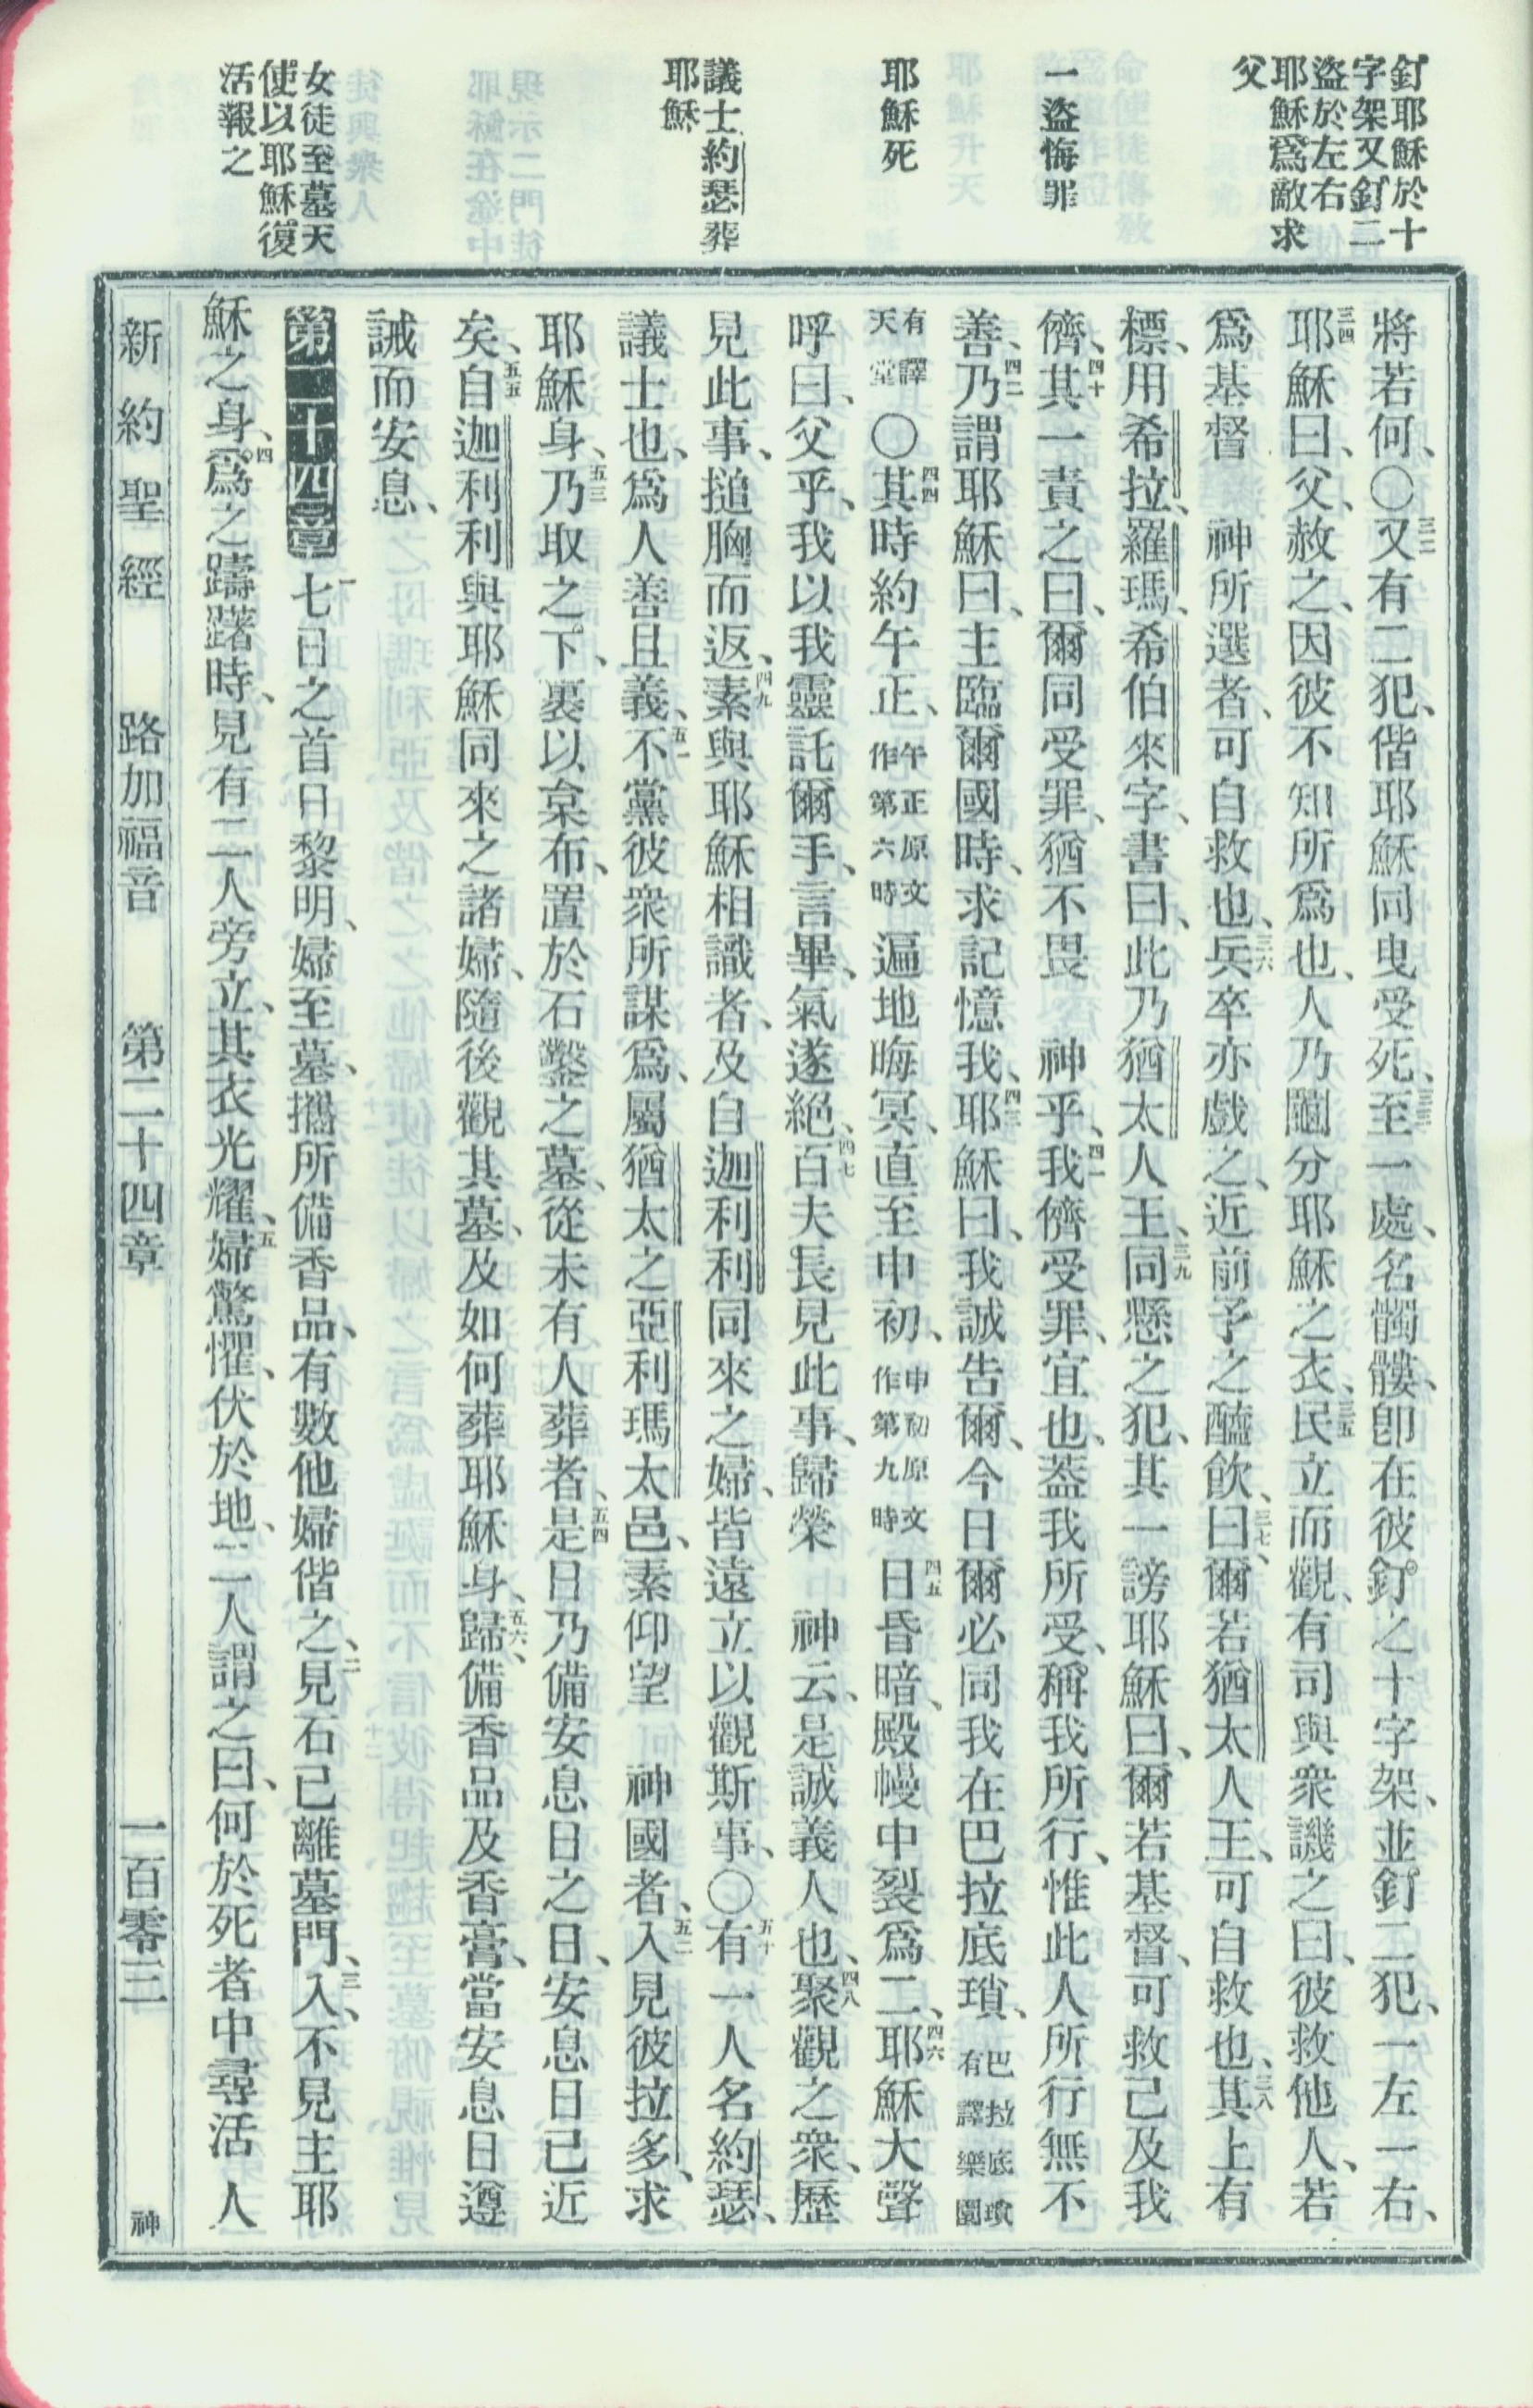 釘耶穌於十
字架又釘二
盜於左右
耶穌爲敵求
父
一盜悔罪
耶穌死
議士約瑟葬
耶穌
女徒至墓天
使以耶穌復
活報之
將若何、〇三二又有二犯、偕耶穌同曳受死、三三至一處、名髑髏、卽在彼釘之十字架、並釘二犯、一左一右、
三四耶穌曰、父、赦之、因彼不知所爲也、人乃鬮分耶穌之衣、三五民立而觀、有司與衆譏之曰、彼救他人、若
爲基督　神所選者、可自救也、三六兵卒亦戲之、近前予之醯飲、三七曰、爾若猶太人王、可自救也、三八其上有
標、用希拉、羅瑪、希伯來字、書曰、此乃猶太人王、三九同懸之犯、其一謗耶穌曰、爾若基督、可救己及我
儕、四十其一責之曰、爾同受罪、猶不畏　神乎、四一我儕受罪、宜也、葢我所受、稱我所行、惟此人所行無不
善、四二乃謂耶穌曰、主臨爾國時、求記憶我、四三耶穌曰、我誠告爾、今日爾必同我在巴拉底瑣、巴拉底瑣有譯樂園
有譯天堂〇四四其時約午正、午正原文作第六時遍地晦冥、直至申初、申初原文作第九時四五日昏暗、殿幔中裂爲二、四六耶穌大聲
呼曰、父乎、我以我靈託爾手、言畢、氣遂絕、四七百夫長見此事、歸榮　神云、是誠義人也、四八聚觀之衆、歷
見此事、搥胸而返、四九素與耶穌相識者、及自迦利利同來之婦、皆遠立以觀斯事、〇五十有一人名約瑟、
議士也、爲人善且義、五一不黨彼衆所謀爲、屬猶太之亞利瑪太邑、素仰望　神國者、五二入見彼拉多、求
耶穌身、五三乃取之下、裹以枲布、置於石鑿之墓、從未有人葬者、五四是日乃備安息日之日、安息日已近
矣、五五自迦利利與耶穌同來之諸婦、隨後觀其墓、及如何葬耶穌身、五六歸、備香品及香膏、當安息日遵
誡而安息、
第二十四章　一七日之首日黎明、婦至墓、攜所備香品、有數他婦偕之、二見石已離墓門、三入、不見主耶
穌之身、四爲之躊躇時、見有二人旁立、其衣光耀、五婦驚懼、伏於地、二人謂之曰、何於死者中尋活人
新約聖經　路加福音　第二十四章　一百零三　神